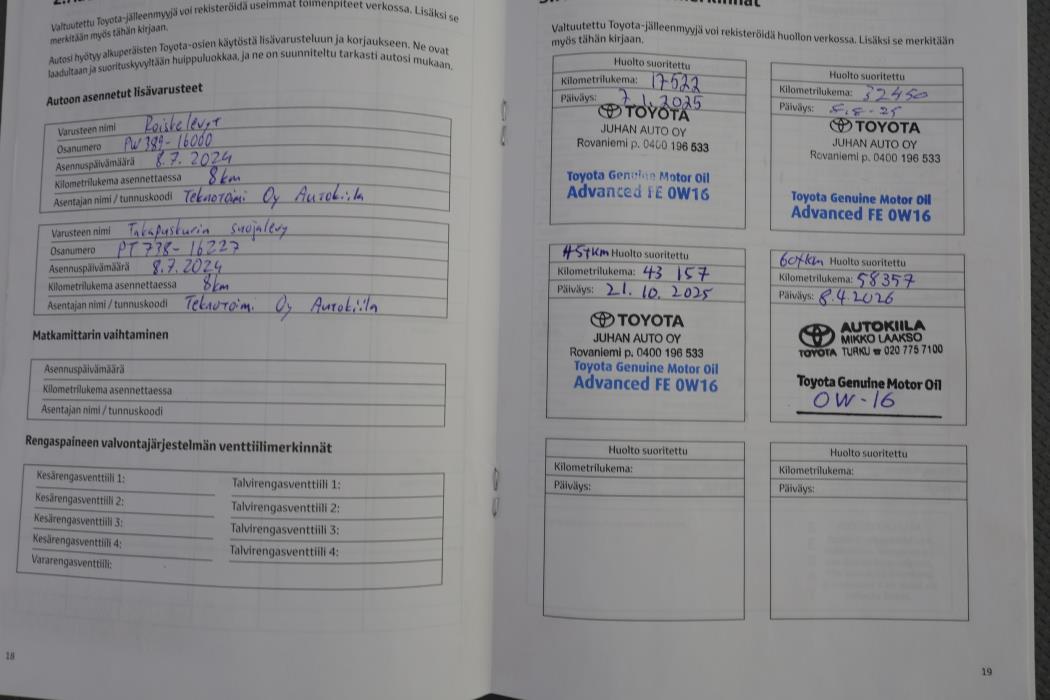 Valtuutettu Toyota-jälleenmyyjä voi rekisteröidä useimmat toimenpiteet verkossa. Lisäksi se
merkitään myös tähän kirjaan.
Autosi hyötyy alkuperäisten Toyota-osien käytöstä lisävarusteluun ja korjaukseen. Ne ovat
laadultaan ja suorituskyvyltään huippuluokkaa, ja ne on suunniteltu tarkasti autosi mukaan.
Autoon asennetut lisävarusteet
Varusteen nimi Roiskelevyt
Osanumero PW389-16000
Asennuspäivämäärä 8.7.2024
Kilometrilukema asennettaessa 8km
Asentajan nimi / tunnuskoodi Teknotoimi Oy Autokiila
Varusteen nimi Takapuskurin suojalevy
Osanumero PT738-16227
Asennuspäivämäärä 8.7.2024
Kilometrilukema asennettaessa 8km
Asentajan nimi / tunnuskoodi Teknotoimi Oy Autokiila
Matkamittarin vaihtaminen
Asennuspäivämäärä
Kilometrilukema asennettaessa
Asentajan nimi / tunnuskoodi
Rengaspaineen valvontajärjestelmän venttiilimerkinnät
Kesärengasventtiili 1:
Kesärengasventtiili 2:
Kesärengasventtiili 3:
Kesärengasventtiili 4:
Vararengasventtiili:
Talvirengasventtiili 1:
Talvirengasventtiili 2:
Talvirengasventtiili 3:
Talvirengasventtiili 4:
18
Valtuutettu Toyota-jälleenmyyjä voi rekisteröidä huollon verkossa. Lisäksi se merkitään
myös tähän kirjaan.
Huolto suoritettu
Kilometrilukema: 17522
Päiväys: 7.1.2025
TOYOTA
JUHAN AUTO OY
Rovaniemi p. 0400 196 533
Toyota Genuine Motor Oil
Advanced FE 0W16
Huolto suoritettu
Kilometrilukema: 32450
Päiväys: 5.8-25
TOYOTA
JUHAN AUTO OY
Rovaniemi p. 0400 196 533
Toyota Genuine Motor Oil
Advanced FE 0W16
45tkm Huolto suoritettu
Kilometrilukema: 43 157
Päiväys: 21.10.2025
TOYOTA
JUHAN AUTO OY
Rovaniemi p. 0400 196 533
Toyota Genuine Motor Oil
Advanced FE 0W16
60tkm Huolto suoritettu
Kilometrilukema: 58357
Päiväys: 8.4.2026
AUTOKIILA
MIKKO LAAKSO
TOYOTA TURKU ☎ 020 775 7100
Toyota Genuine Motor Oil
0W-16
Huolto suoritettu
Kilometrilukema:
Päiväys:
Huolto suoritettu
Kilometrilukema:
Päiväys:
19